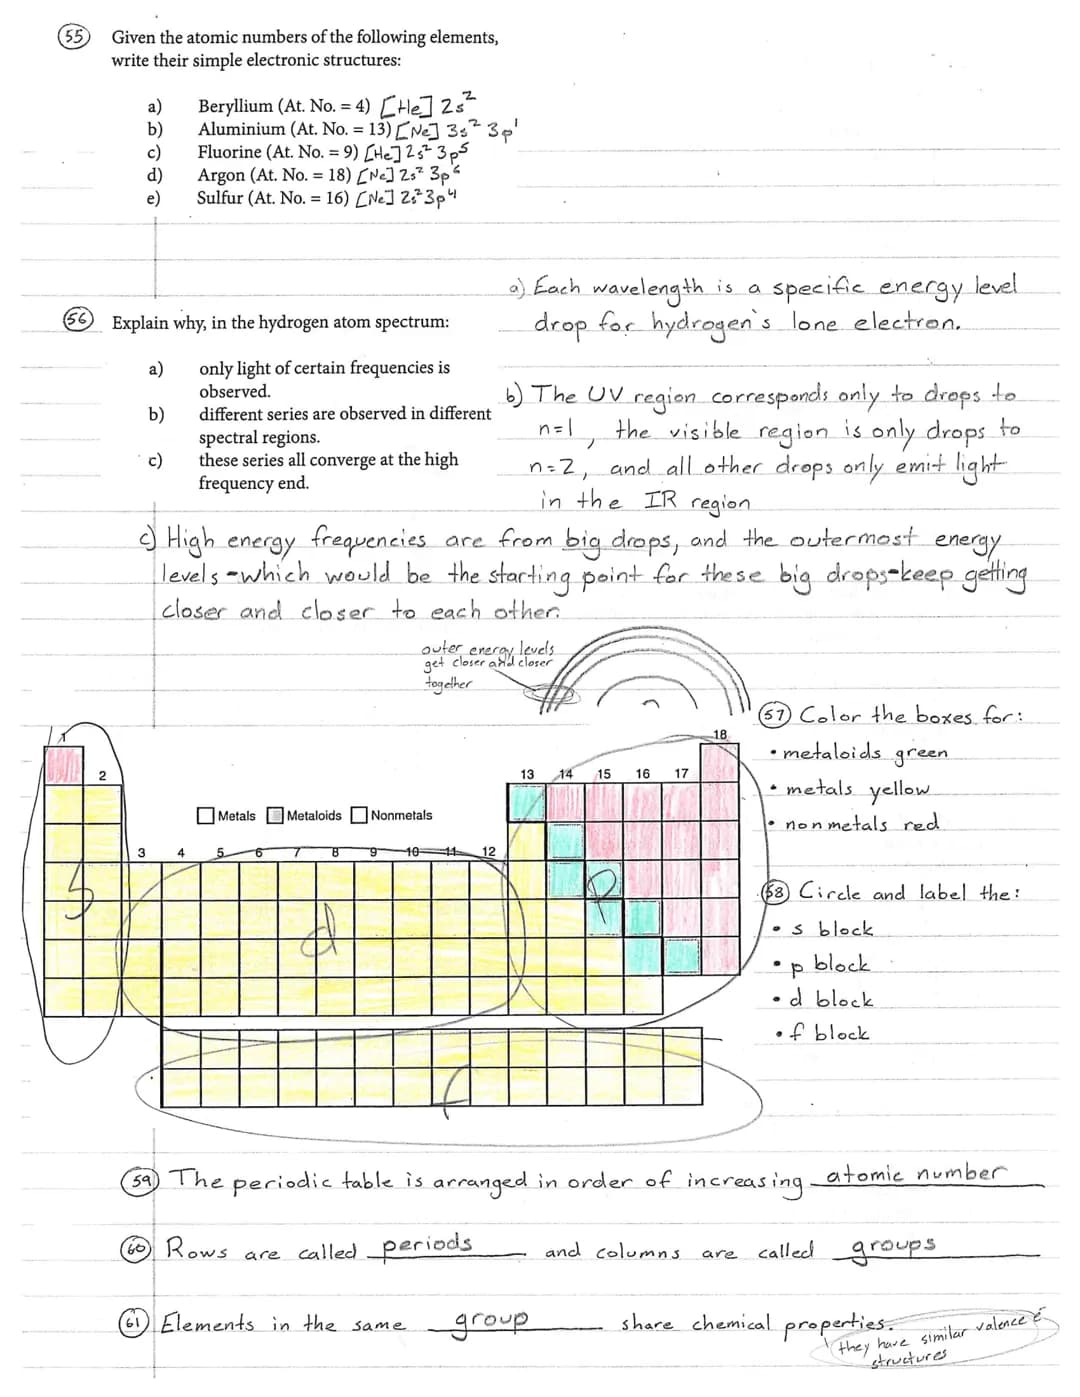 55 Given the atomic numbers of the following elements,
write their simple electronic structures:
a) Beryllium (At. No. = 4) [He] 2s²
b) Aluminium (At. No. = 13) [Ne] 3s² 3p¹
c) Fluorine (At. No. = 9) [He] 2s² 3p⁵
d) Argon (At. No. = 18) [Ne] 2s² 3p⁶
e) Sulfur (At. No. = 16) [Ne] 2s² 3p⁴
56 Explain why, in the hydrogen atom spectrum:
a) only light of certain frequencies is
observed.
b) different series are observed in different
spectral regions.
c) these series all converge at the high
frequency end.
a) Each wavelength is a specific energy level
drop for hydrogen's lone electron.
b) The UV region corresponds only to drops to
n=1, the visible region is only drops to
n=2, and all other drops only emit light
in the IR region
c) High energy frequencies are from big drops, and the outermost energy
levels-which would be the starting point for these big drops-keep getting
closer and closer to each other.
outer energy levels
get closer and closer
together
1
2
3 4 5 6 7 8 9 10 11 12
13 14 15 16 17
18
Metals Metaloids Nonmetals
s
d
p
f
57 Color the boxes for:
• metaloids green
• metals yellow
• nonmetals red
58 Circle and label the:
• s block
• p block
• d block
• f block
59 The periodic table is arranged in order of increasing atomic number
60 Rows are called periods and columns are called groups
61 Elements in the same group share chemical properties.
they have similar valence é
structures